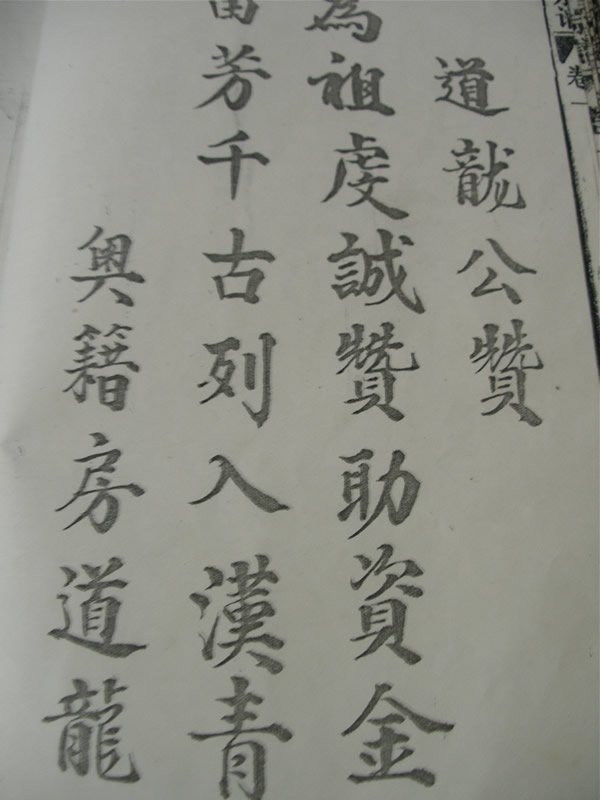 谱卷一
道龍公贊
為祖虔誠贊助資金
留芳千古列入漢青
奥籍房道龍